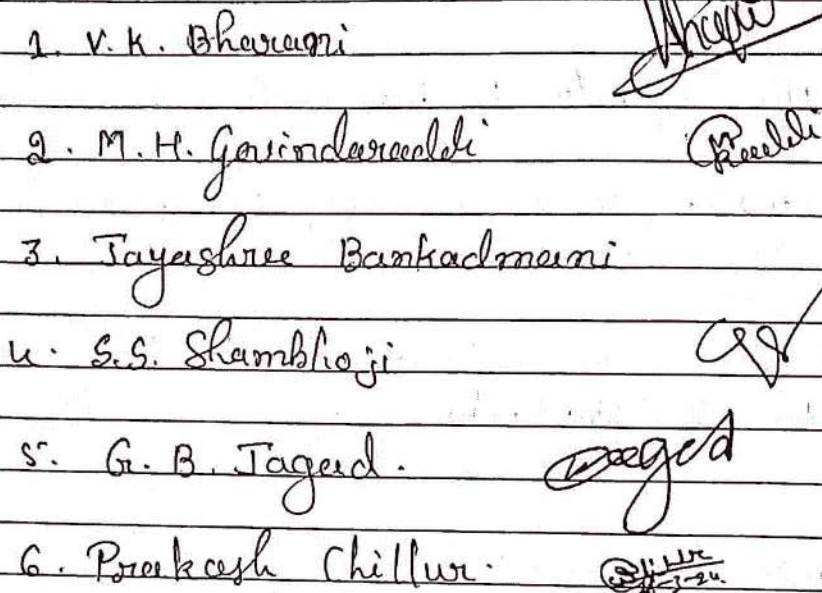 1. V. K. Bharagi
2. M. H. Govindaraddi Raddi
3. Jayashree Bankadmani
4. S.S. Shambhoji
5. G. B. Jagad.
6. Prakash Chillur.